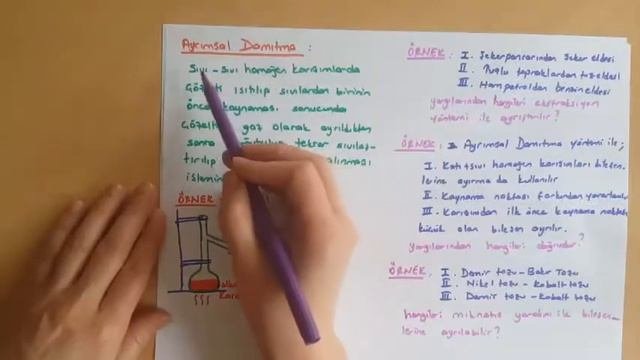 Ayrımsal Damıtma :
Sıvı - sıvı homojen karışımlarda
ısıtılıp sıvılardan birinin
önce kaynaması sonucunda
gaz olarak ayrıldıktan
sonra tekrar sıvılaş-
tırılıp alınması
işlemin
ÖRNEK
ÖRNEK: I. Şekerpancarından şeker eldesi
II. Tuzlu topraklardan tuz eldesi
III. Ham petrolden benzin eldesi
yargılarından hangileri ekstraksiyon
yöntemi ile ayrıştırılır?
ÖRNEK: Ayrımsal Damıtma yöntemi ile;
I. Katı+sıvı homojen karışımları bileşen-
lerine ayırmada kullanılır
II. Kaynama noktası farkından yararlanılır
III. Karışımdan ilk önce kaynama noktası
küçük olan bileşen ayrılır.
yargılarından hangileri doğrudur?
ÖRNEK: I. Demir tozu - Bakır Tozu
II. Nikel tozu - kobalt tozu
III. Demir tozu - kobalt tozu
hangileri mıknatıs yardımı ile bileşen-
lerine ayrılabilir?